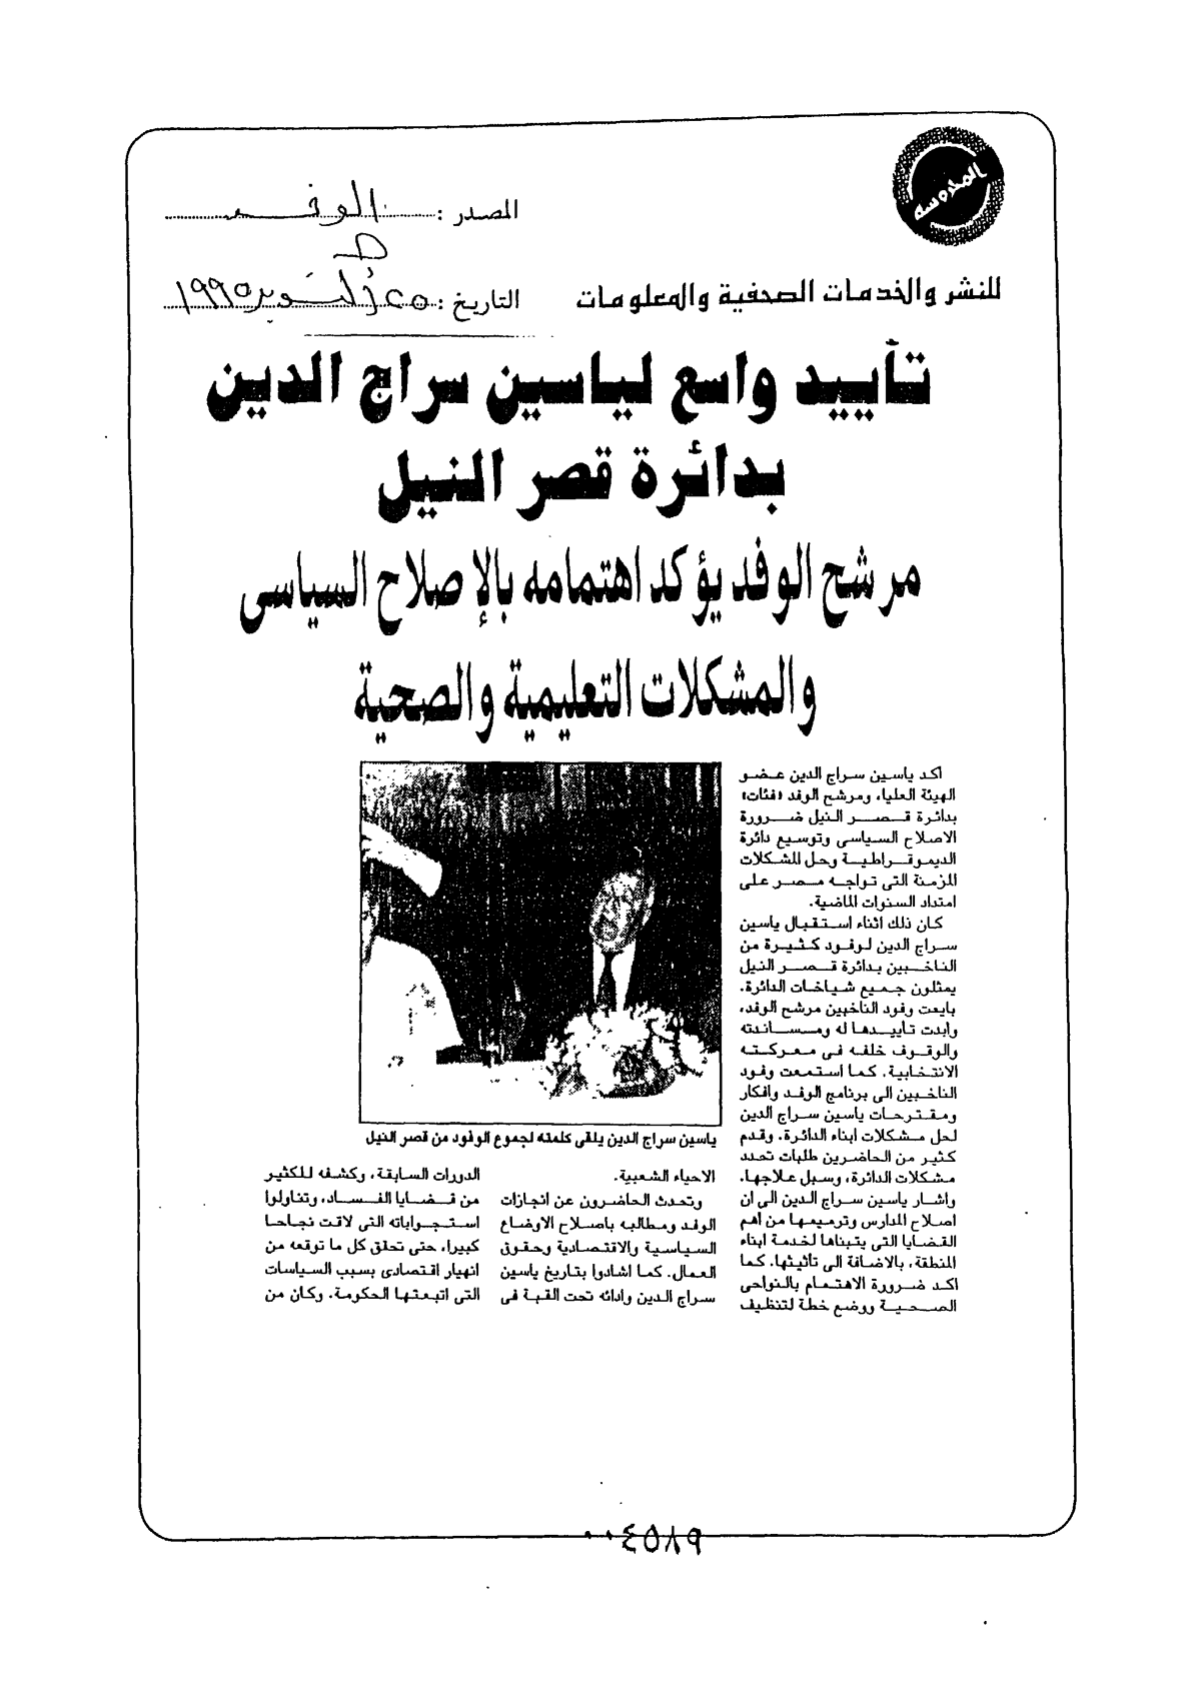 المحروسة
المصدر : الوفد
للنشر والخدمات الصحفية والمعلومات
التاريخ : ٢٥ أكتوبر ١٩٩٥
تأييد واسع لياسين سراج الدين
بدائرة قصر النيل
مرشح الوفد يؤكد اهتمامه بالإصلاح السياسى
والمشكلات التعليمية والصحية
اكد ياسين سراج الدين عضو
الهيئة العليا، ومرشح الوفد «فئات»
بدائرة قصر النيل ضرورة
الاصلاح السياسى وتوسيع دائرة
الديموقراطية وحل المشكلات
المزمنة التى تواجه مصر على
امتداد السنوات الماضية.
كان ذلك اثناء استقبال ياسين
سراج الدين لوفود كثيرة من
الناخبين بدائرة قصر النيل
يمثلون جميع شياخات الدائرة.
بايعت وفود الناخبين مرشح الوفد،
وابدت تأييدها له ومساندته
والوقوف خلفه فى معركته
الانتخابية. كما استمعت وفود
الناخبين الى برنامج الوفد وافكار
ومقترحات ياسين سراج الدين
لحل مشكلات ابناء الدائرة. وقدم
كثير من الحاضرين طلبات تحدد
مشكلات الدائرة، وسبل علاجها.
واشار ياسين سراج الدين الى ان
اصلاح المدارس وترميمها من أهم
القضايا التى يتبناها لخدمة ابناء
المنطقة، بالاضافة الى تأثيثها. كما
اكد ضرورة الاهتمام بالنواحى
الصحية ووضع خطة لتنظيف
ياسين سراج الدين يلقى كلمته لجموع الوفود من قصر النيل
الاحياء الشعبية.
وتحدث الحاضرون عن انجازات
الوفد ومطالبه باصلاح الاوضاع
السياسية والاقتصادية وحقوق
العمال. كما اشادوا بتاريخ ياسين
سراج الدين وادائه تحت القبة فى
الدورات السابقة، وكشفه للكثير
من قضايا الفساد، وتناولوا
استجواباته التى لاقت نجاحا
كبيرا، حتى تحقق كل ما توقعه من
انهيار اقتصادى بسبب السياسات
التى اتبعتها الحكومة. وكان من
٠٠٤٥٨٩